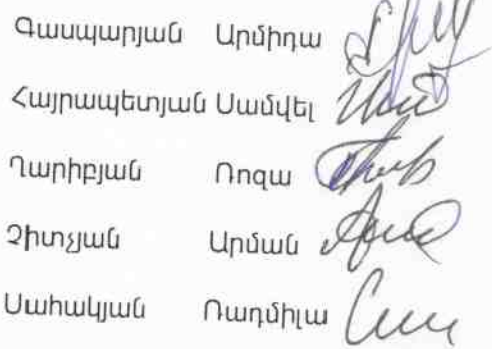 Գասպարյան Արմիդա
Հայրապետյան Սամվել
Ղարիբյան Ռոզա
Չիտչյան Արման
Սահակյան Ռադմիլա